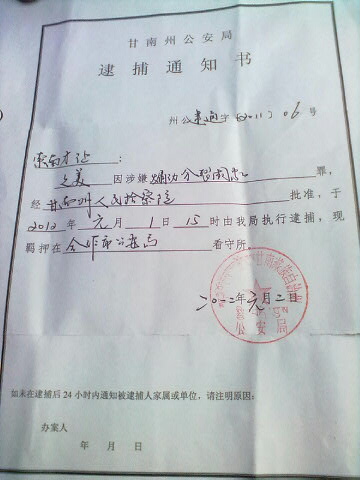 甘南州公安局
逮捕通知书
州公逮通字〔2011〕06号
索南才让：
之美因涉嫌煽动分裂国家罪，
经甘南州人民检察院批准，于
2012年元月1日15时由我局执行逮捕，现
羁押在合作市公安局看守所。
二〇一二年元月二日
公安局
如未在逮捕后24小时内通知被逮捕人家属或单位，请注明原因：
办案人
年 月 日